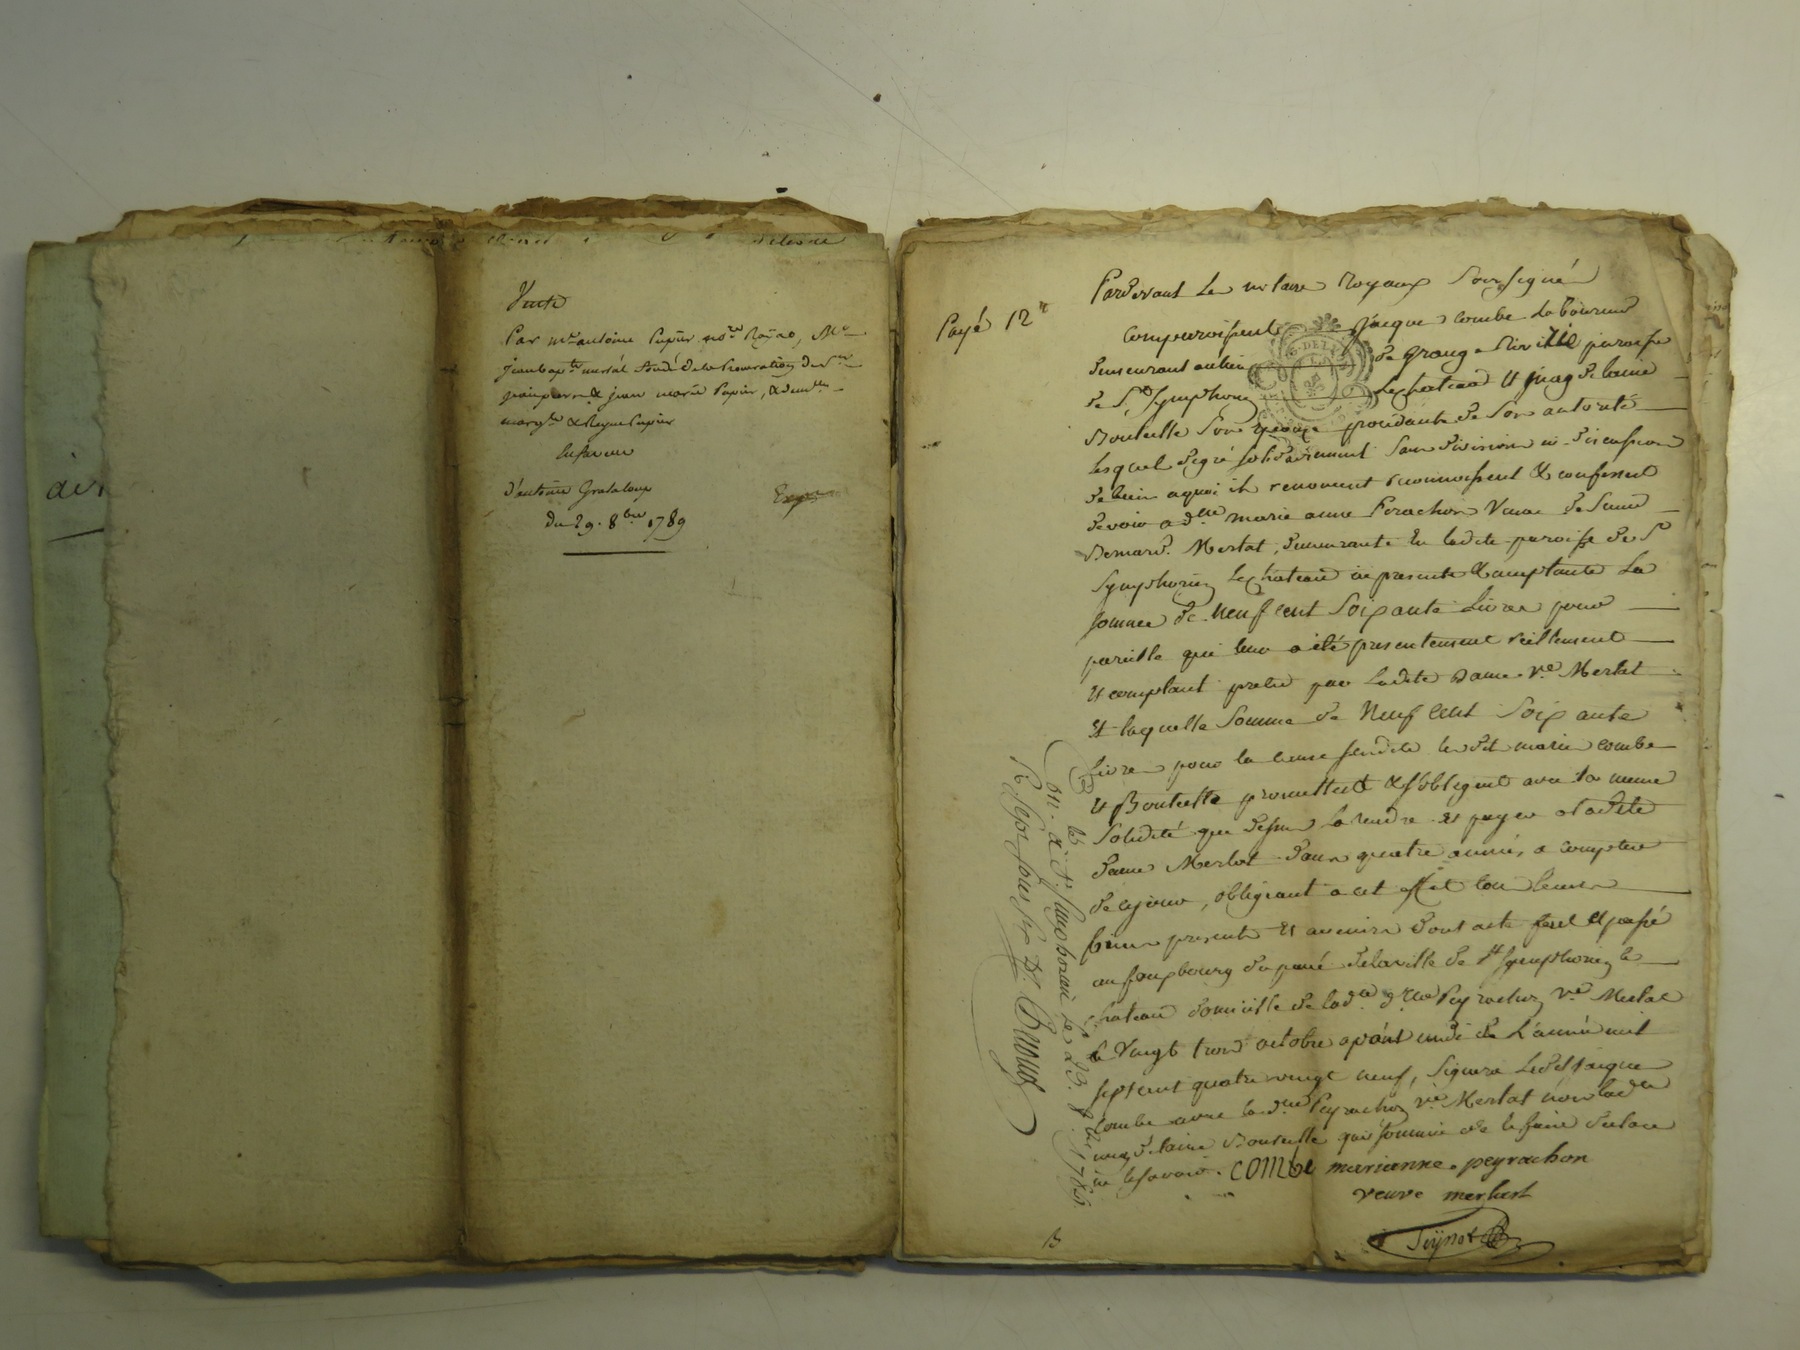 Vente
Par me antoine Pupier nore Royal, Me
jean bapte mertat fondé de la Procuration de Srs
jean pierre & jean marie Pupier, & demlles
margte & Reyne Pupier
En faveur
d'antoine Grataloup
du 29. 8bre 1789
Expé
Payé 12 #
Pardevant Le notaire Royaux Soussigné
Comparoissent jacque Combe laboureur
demeurant au lieu de Grange paroisse
de St Symphorien Le chateau Et magdelaine
Bouteille Son epouse procédante de Son autorité
Lesquel de gré solidairement Sans division ni discussion
de bien a quoi ils renoncent reconnoissent & confessent
devoir a dlle marie anne Perachon Veuve de Sieur
Bernard Mertat, demeurante En ladite paroisse de St
Symphorien le chateau ici presente & acceptante La
somme de neuf cent Soixante Livres pour
pareille qui leur a été presentement réellement
Et comptant preté par Ladite Dame ve Mertat
Et laquelle Somme de neuf Cent Soixante
Livres pour la cause susdite lesdits mariés combe
Et Bouteille promettent & s'obligent avec la meme
Solidité que dessus la rendre Et payer a Ladite
Dame Mertat dans quatre années, a compter
de ce jour, obligeant a cet effet tous leurs
biens presents Et avenirs dont acte fait & passé
au fauxbourg du pavé de la ville de St Symphorien le
chateau domicille de lade dlle Peyrachon ve Mertat
le vingt trois octobre apres midi de L'année mil
sept cent quatre vingt neuf, Signera Ledit jacque
Combe avec lad. dlle Peyrachon ve Mertat non lade
magdelaine Bouteille qui sommée de le faire declare
ne le savoir. COMbe marianne peyrachon
veuve merlat
Con.lé à St. simphorien le 23. 8.bre 1789
R. sept sous six d.